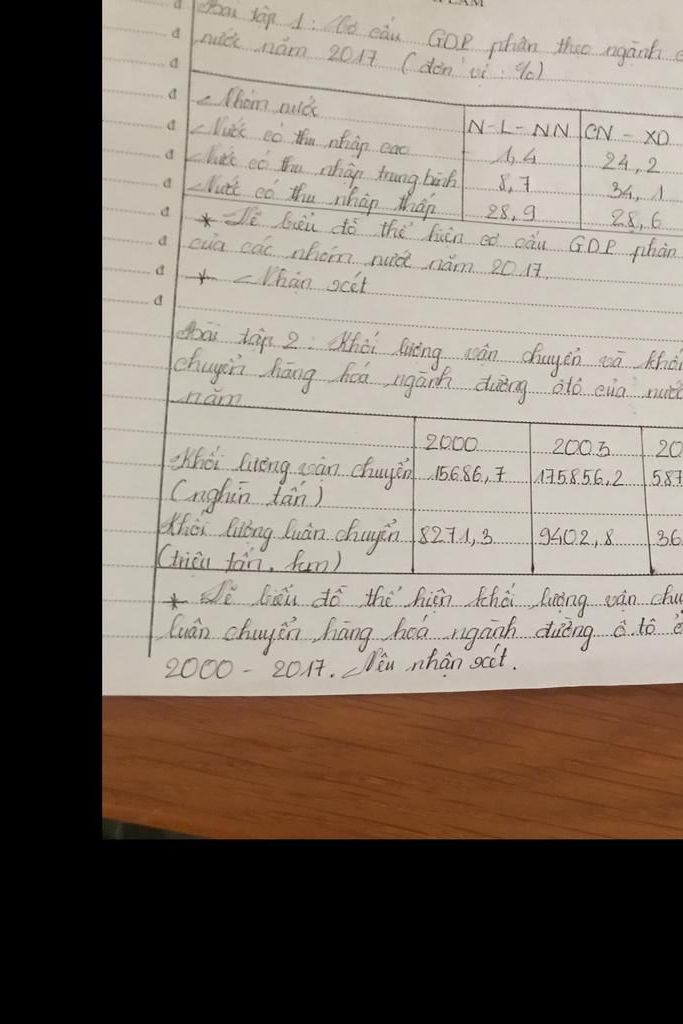 Bài tập 1: Cơ cấu GDP phân theo ngành
nước năm 2017 (đơn vị: %)
Nhóm nước N-L-NN CN-XD
Nước có thu nhập cao 1,4 24,2
Nước có thu nhập trung bình 8,7 34,1
Nước có thu nhập thấp 28,9 28,6
* Vẽ biểu đồ thể hiện cơ cấu GDP phân
của các nhóm nước năm 2017.
* Nhận xét
Bài tập 2: Khối lượng vận chuyển và khối
chuyển hàng hoá ngành đường ôtô của nước
năm
2000 2003 20
Khối lượng vận chuyển 15686,7 175856,2 587
(nghìn tấn)
Khối lượng luân chuyển 8271,3 9402,8 36
(triệu tấn.km)
* Vẽ biểu đồ thể hiện khối lượng vận chu
luân chuyển hàng hoá ngành đường ô tô ở
2000 - 2017. Nêu nhận xét.